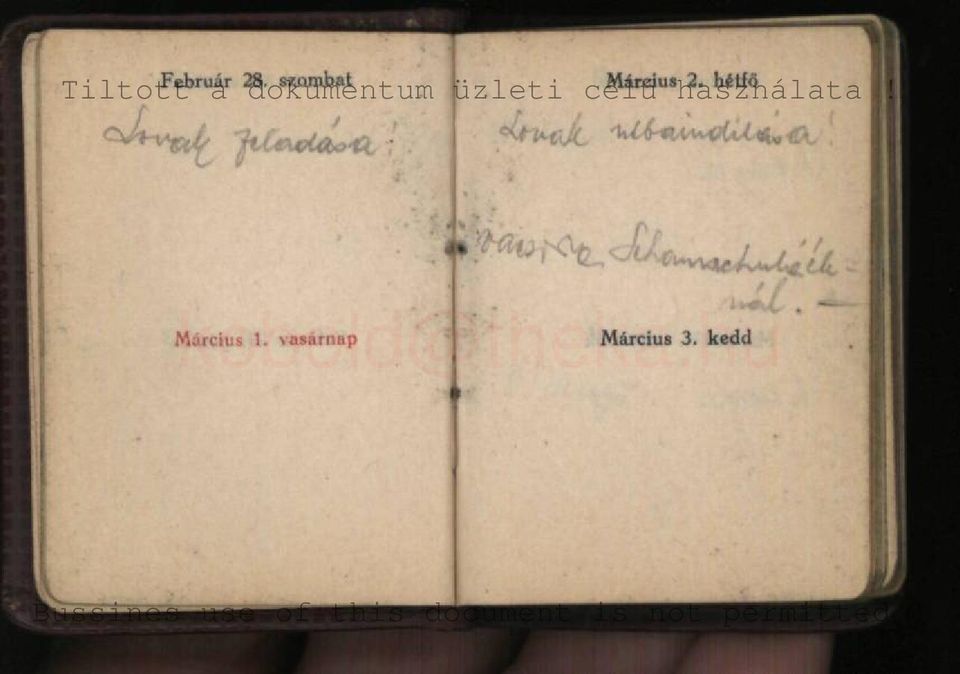 Tiltott a dokumentum üzleti célú használata !
Február 28. szombat
Lovak feladása!
Március 1. vasárnap
Március 2. hétfő
Lovak utbaindítása!
vacsora
nál. —
Március 3. kedd
kobold@theka.hu
Bussines use of this document is not permitted !